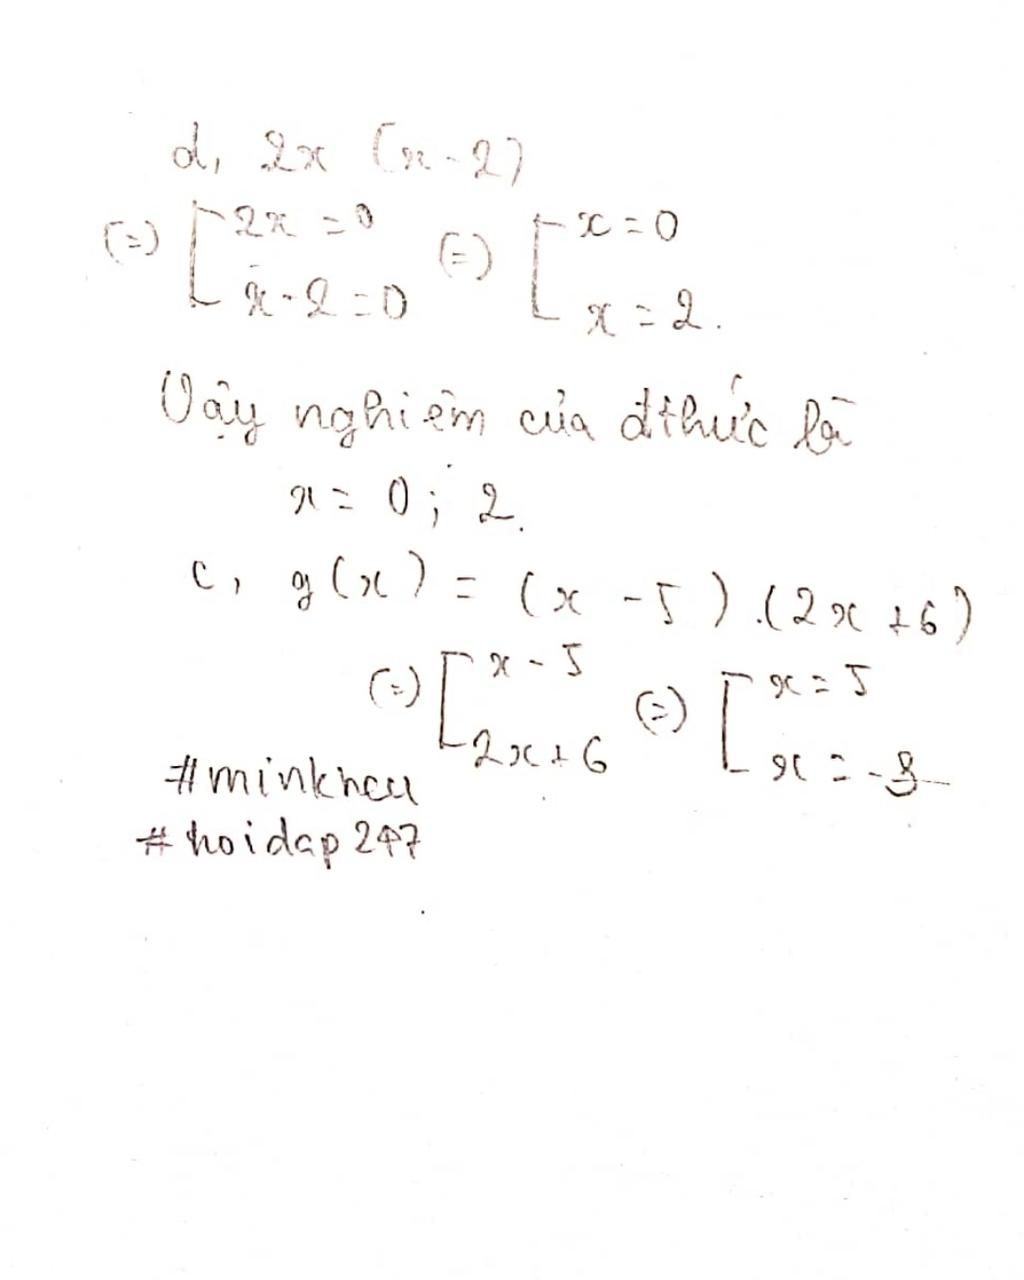 d, 2x (x-2)
(=) [ 2x = 0 (=) [ x = 0
x - 2 = 0 x = 2.
Vậy nghiệm của đthức là
x = 0 ; 2.
c, g(x) = (x - 5) . (2x + 6)
(=) [ x - 5 (=) [ x = 5
2x + 6 x = -3
#minkhcu
#hoidap247